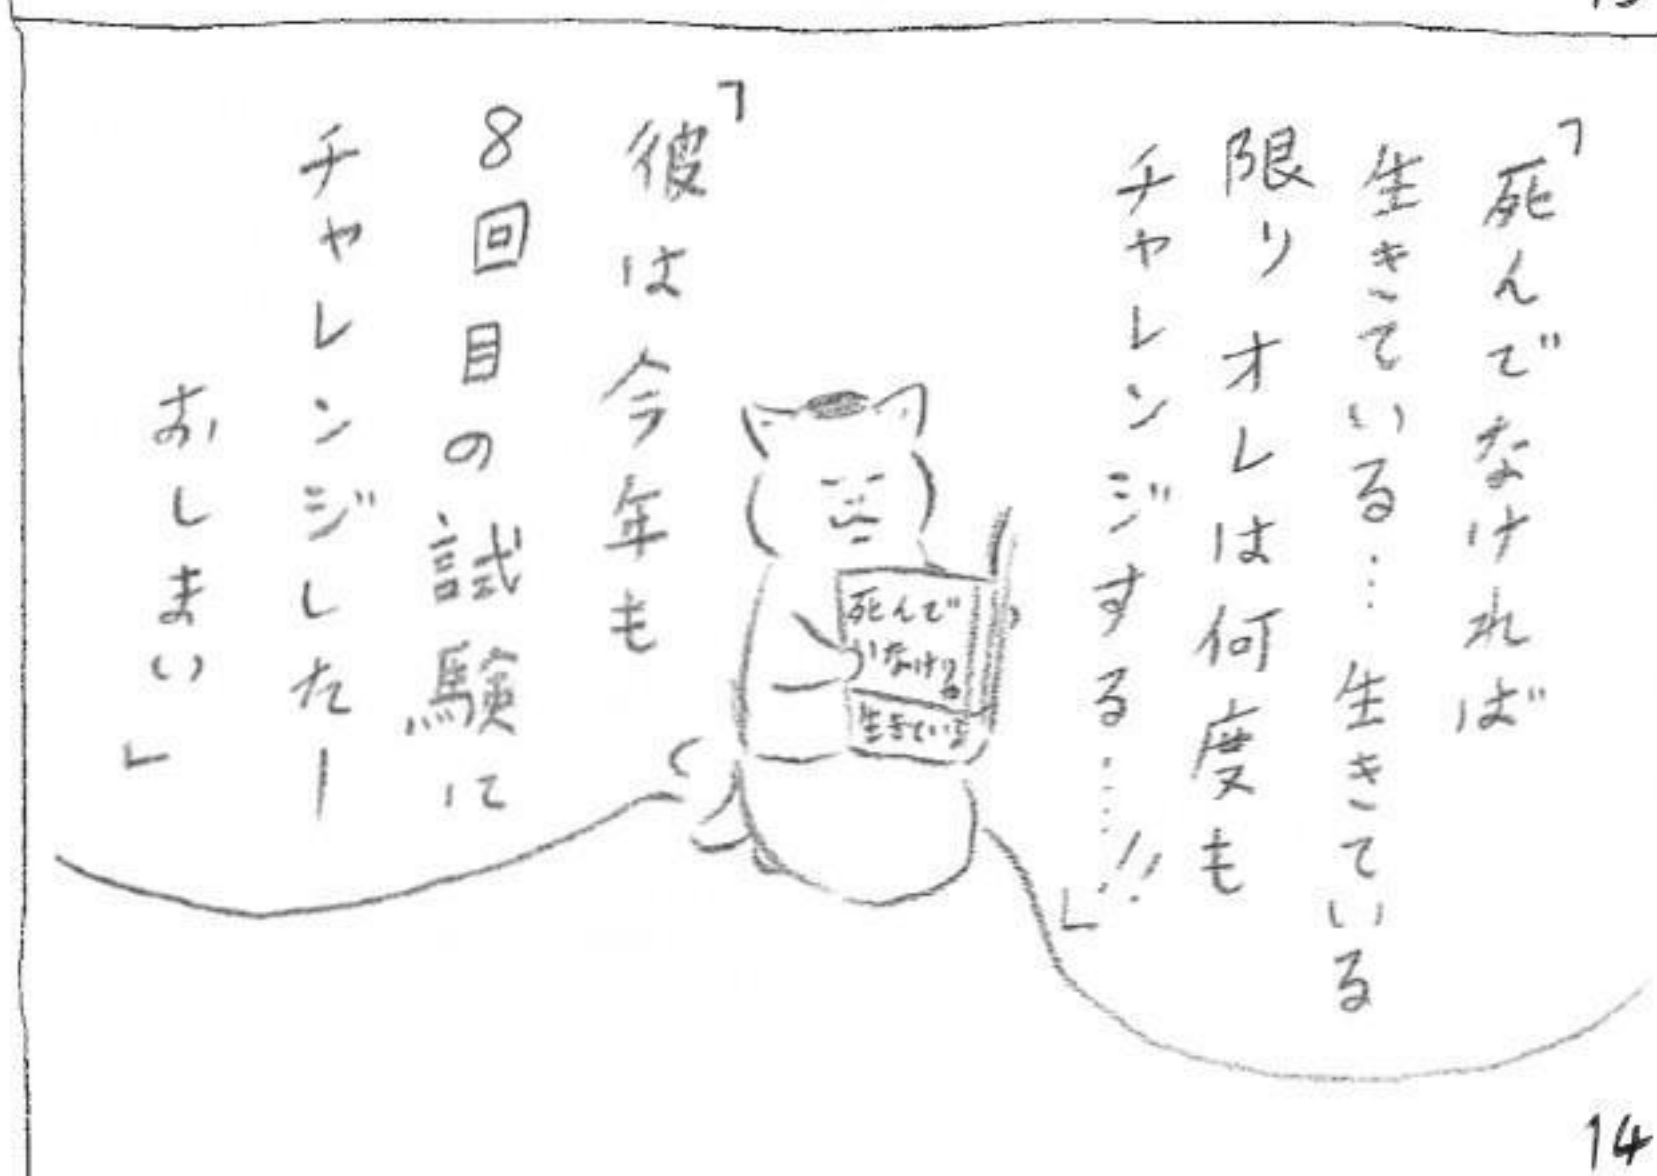 「死んでなければ
生きている…生きている
限りオレは何度も
チャレンジする……!!」
死んで
いなけりゃ
生きている
「彼は今年も
8回目の試験に
チャレンジしたー
おしまい」
14